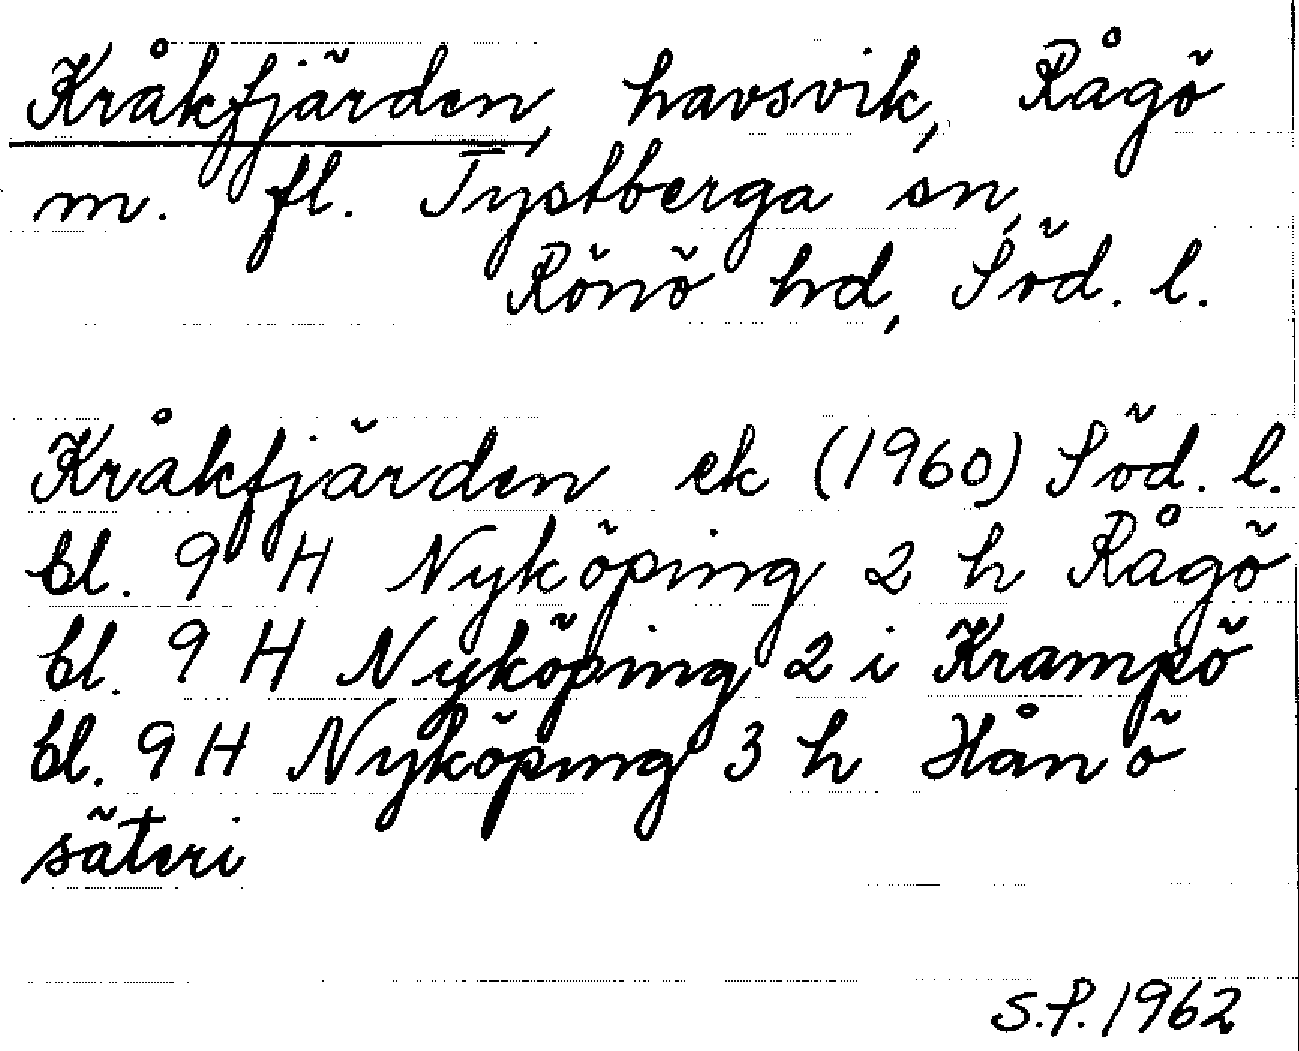 Kråkfjärden, havsvik, Rågö
m. fl. Tystberga sn,
Rönö hd, Söd. l.
Kråkfjärden ek (1960) Söd. l.
bl. 9 H Nyköping 2 h Rågö
bl. 9 H Nyköping 2 i Krampö
bl. 9 H Nyköping 3 h Hånö
säteri
S.P. 1962